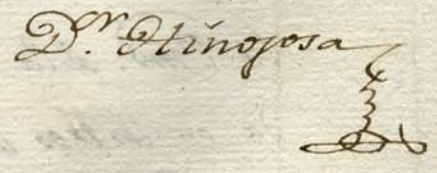 D.r Hinojosa